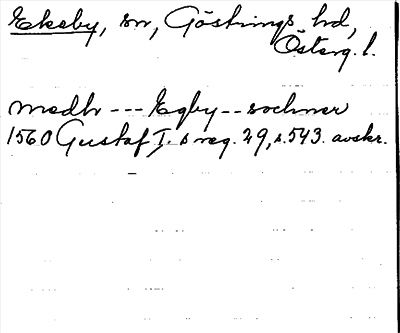 Ekeby, sn, Göstrings hd,
Österg. l.
medh --- Egby -- sochner
1560 Gustaf I. s reg. 29, s. 543. avskr.